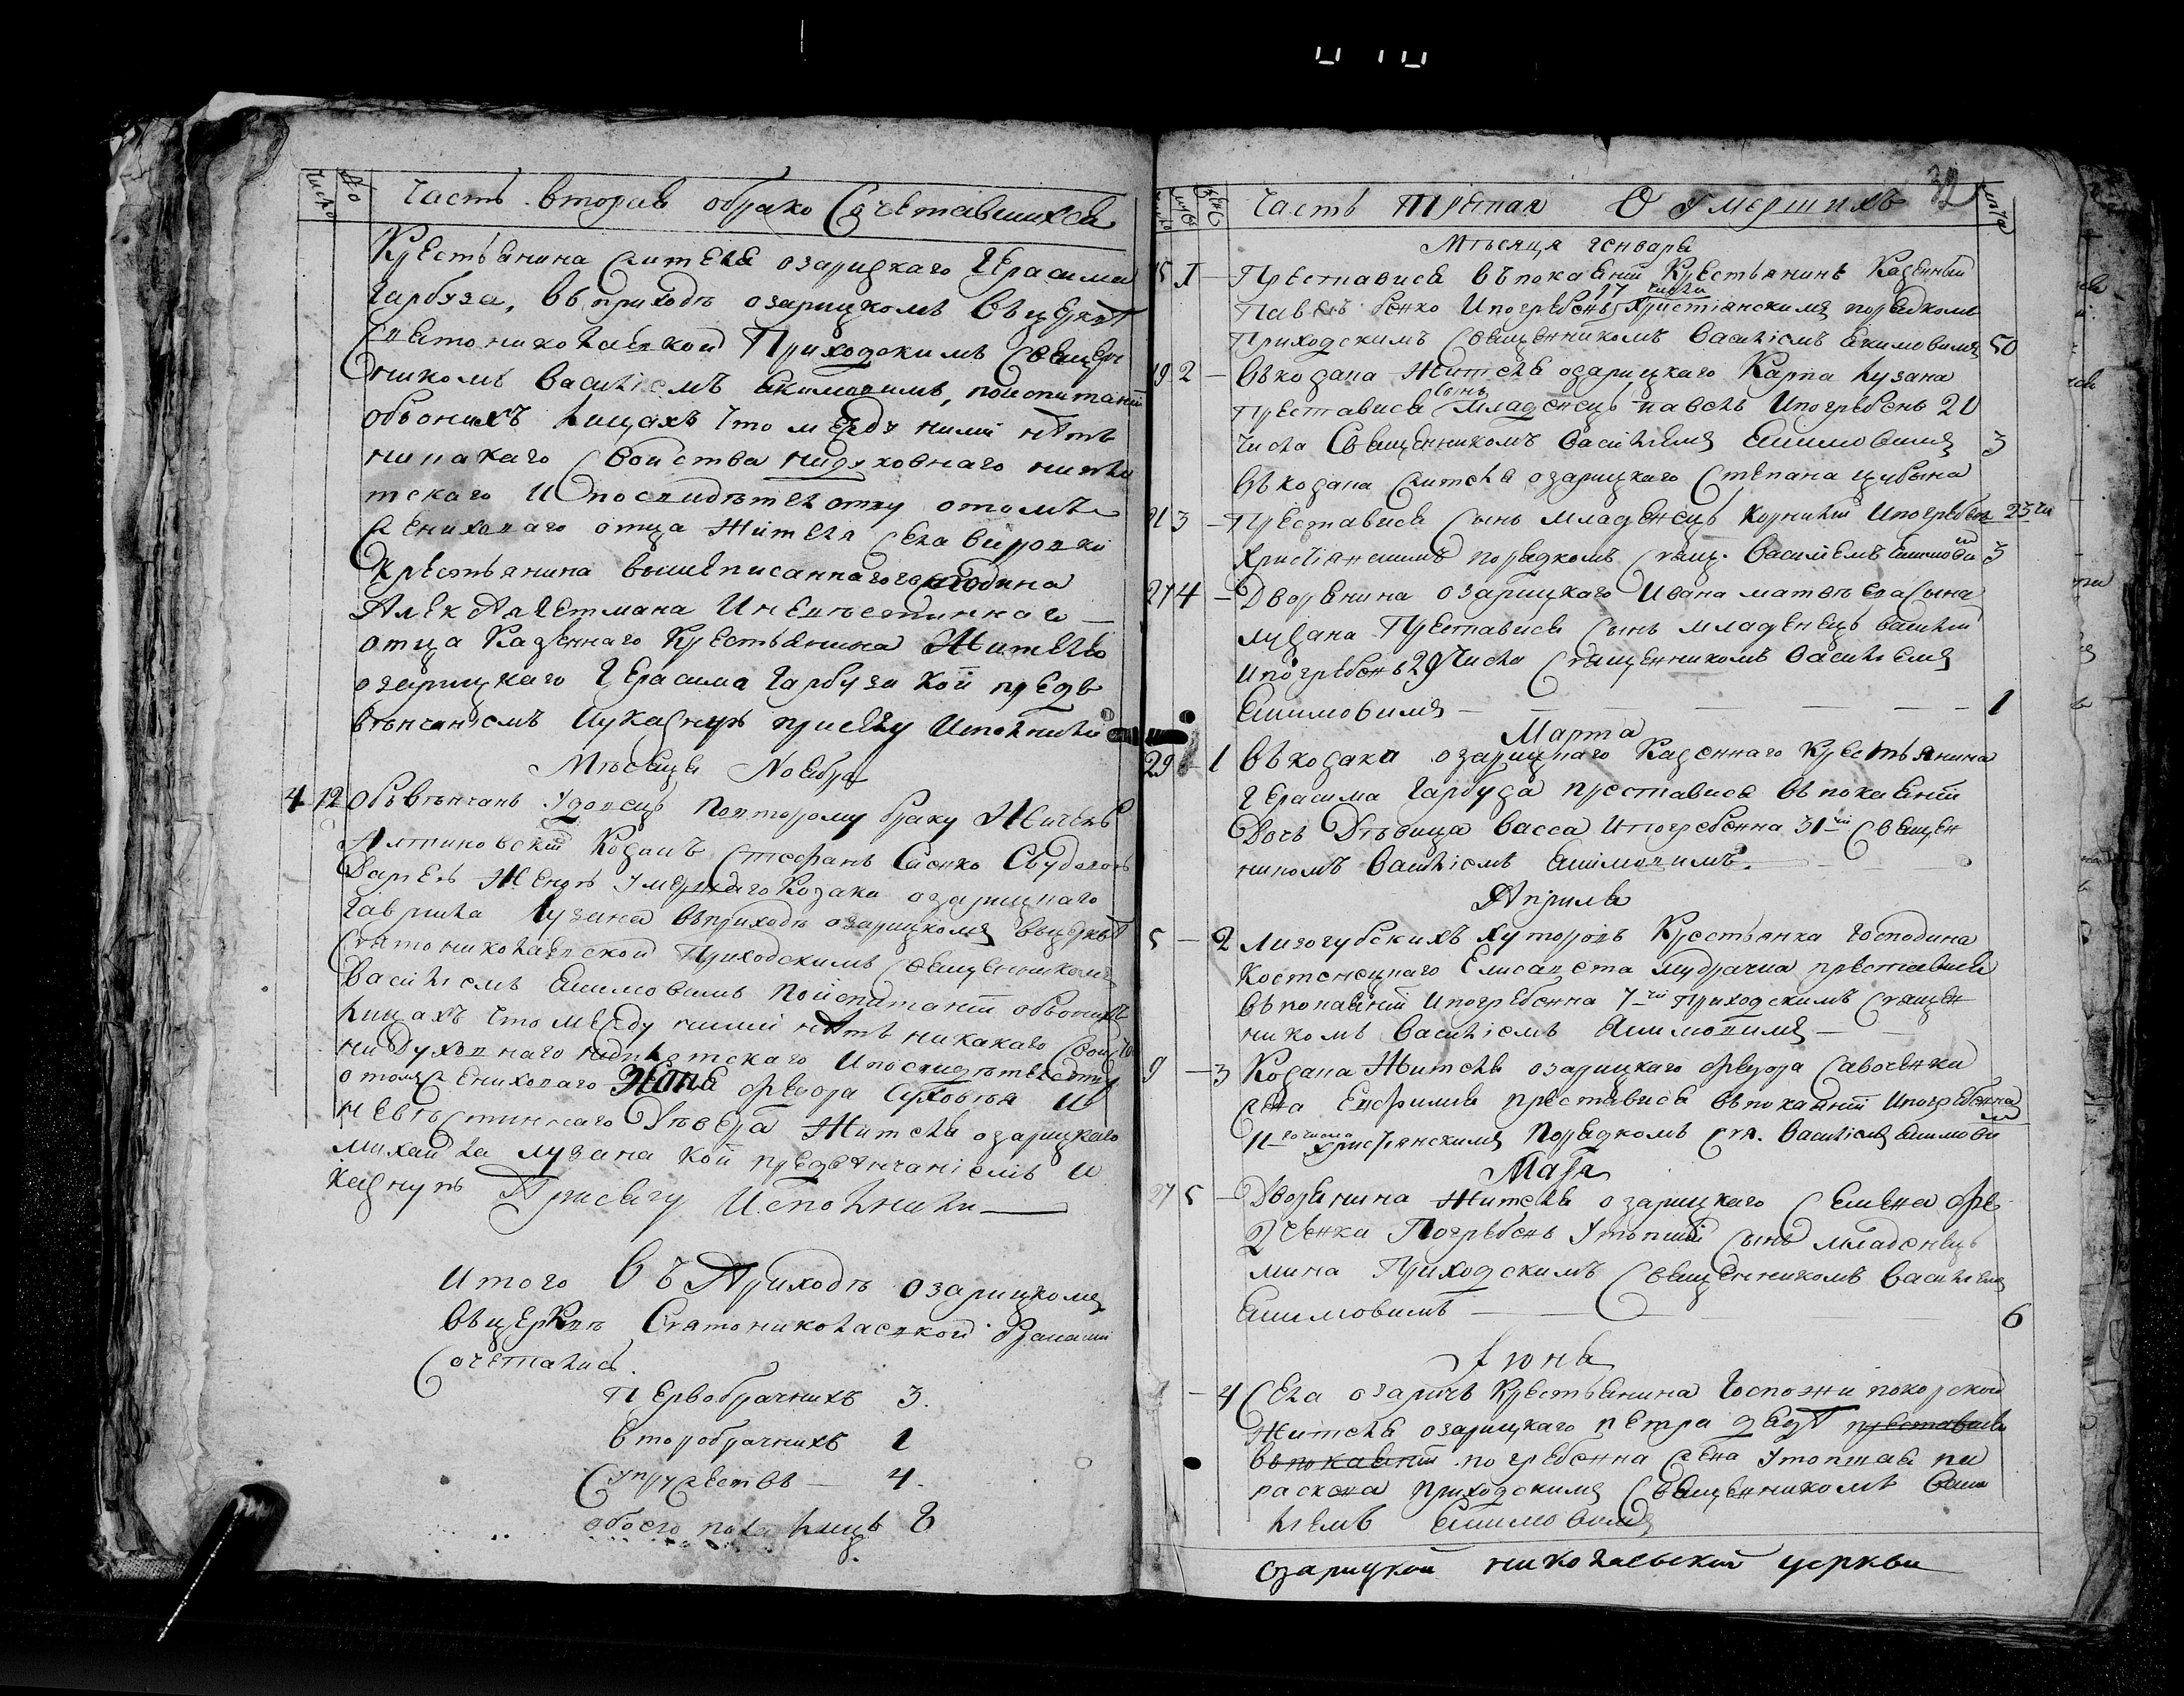 число
Часть вторая обрако Сочетавшихся
Крестьянина жителя озарицкаго Герасима
Гарбуза, въ приходѣ озарицкомъ въ церквѣ
Святониколаевской Приходскимъ Священ
никомъ Василіемъ Екимовимъ, поиспитаніи
обоонихъ лицахъ что между ними нѣтъ
никакаго Свойства нидуховнаго нипло
тскаго И по свидѣтелству отомъ
женихового отца жителя Села
Крестьянина вышеписаннаго господина
Гетмана И невѣстиннаго
отца Казенного Крестьянина Жителя
озарицкаго Герасима Гарбуза кой предъ
вѣнчаніемъ Иуказнуъ присягу Исполнили
Мѣсяца Ноября
4 12 Обвѣнчанъ удовецъ повторому браку Житель
Алтиновскій Козакъ Стефанъ Сасико Свудовою
Жена умершаго Козака озарицкаго
Гаврила Лузана въ приходѣ озарицкомъ въ церквѣ
Святониколаевской Приходскимъ Священникомъ
Василіемъ Екимовимъ Поиспитаніи обоонихъ
лицахъ что между ними нѣтъ никакаго Свойства
ни Духовнаго ниплотскаго Ипосвидѣтелству
отомъ женихового Федора И
невѣстиннаго Жителя озарицкаго
Михайла лузана кой предъвѣнчаніемъ и
Присягу Исполнили
Итого Въ Приходѣ озарицкомъ
Въ церквѣ Святониколаевской браками
Сочетались
Первобрачнихъ 3.
Второбрачнихъ 1
Супружествъ 4.
обоего пола лицъ 8
32
число
лѣта
Часть Третая О Умершихъ
Мѣсяця генваря
15 1 Преставися въ покаяніи Крестьянинъ Казенный
17 числа
Павелъ Ипогребенъ Христіанскимъ порядкомъ
Приходскимъ Священникомъ Василіемъ Екимовимъ 50
19 2 въ козака Жителя озарицкаго Карпа Лузана
сынъ
Преставися Младенецъ павелъ Ипогребенъ 20
числа Священникомъ Василіемъ Екимовимъ 3
въ козака жителя озарицкаго Степана
21 3 Преставися Сынъ Младенецъ Корнилій Ипогребенъ 23 чи
Христіанскимъ порядкомъ Свящ. Василіемъ Екимови 3
27 4 Дворянина озарицкаго Ивана матвѣева Сына
лузана Преставися Сынъ младенецъ Василій
ипогребенъ 29 числа Священникомъ Василіемъ
Екимовимъ 1
Марта
29 1 въ козака озарицкаго Казеннаго Крестьянина
Герасима Гарбуза преставися въ покаяніи
Дочь Дѣвица Васса ипогребенна 31 чи Священ
никомъ Василіемъ Екимовимъ.
Априля
5 2 Лизогубскихъ хуторовъ Крестьянка господина
Костенецкаго Елисавета преставися
въ покаяніи ипогребенна 7 чи Приходскимъ Священ
никомъ Василіемъ Екимовимъ
9 3 Козака Жителя озарицкаго Федора Савоченка
жена Ефимия преставися въ покаяніи ипогребенна
11 го числа Христіанскимъ Порядкомъ свя. Василіемъ Екимови
Маія
27 5 Дворянина Жителя озарицкаго Семена
Погребенъ Утопшій Сынъ младенецъ
мина Приходскимъ Священникомъ Василіемъ
Екимовимъ 6
Іюня
4 Села озаричъ Крестьянина Госпожи покорской
Жителя озарицкаго петра преставися
въ покаяніи погребенна жена Утопшая па
раскева приходскимъ Священникомъ Васи
ліемъ Екимовимъ
озарицкой николаевской церкви